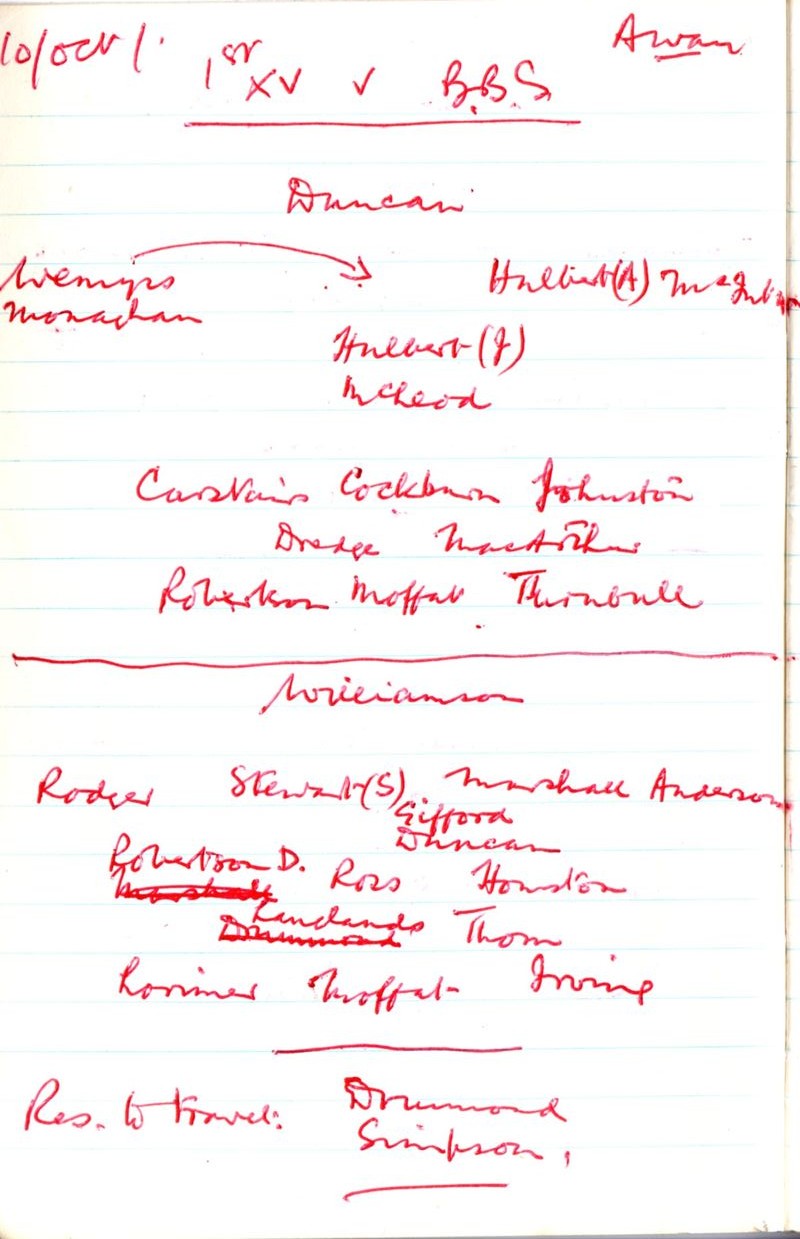 10/Oct/. Away
1st XV v B.B.S
Duncan
Wemyss Hulbert(A)
Monaghan
Hulbert(J)
McLeod
Carstairs Cockburn Johnston
Dredge MacArthur
Robertson Moffat Thurnbull
Williamson
Rodger Stewart(S) Marshall Anderson
Gifford
Duncan
Robertson D.
Marshall Ross Houston
Landlands
Drummond Thom
Lorimer Moffat Irving
Res. to travel: Drummond
Simpson,